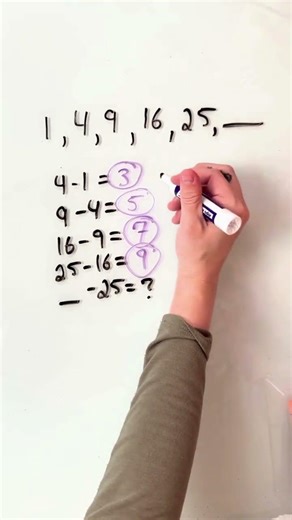 1, 4, 9, 16, 25, __
4-1=3
9-4=5
16-9=7
25-16=9
__ -25=?